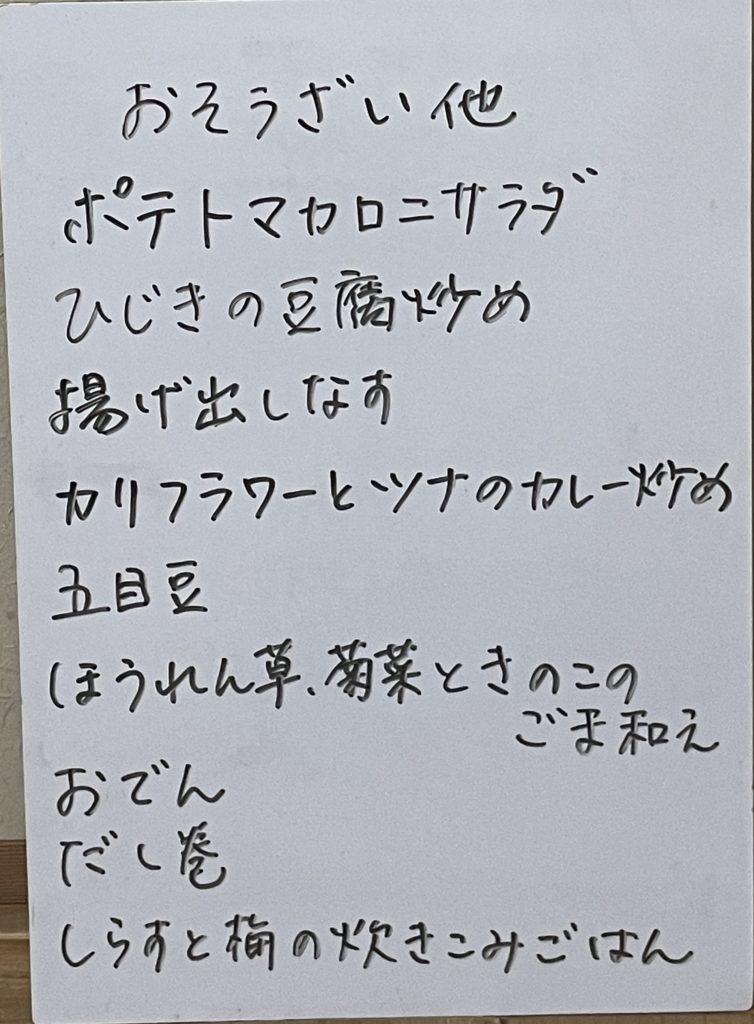 おそうざい他
ポテトマカロニサラダ
ひじきの豆腐炒め
揚げ出しなす
カリフラワーとツナのカレー炒め
五目豆
ほうれん草、菊菜ときのこの
ごま和え
おでん
だし巻
しらすと梅の炊きこみごはん